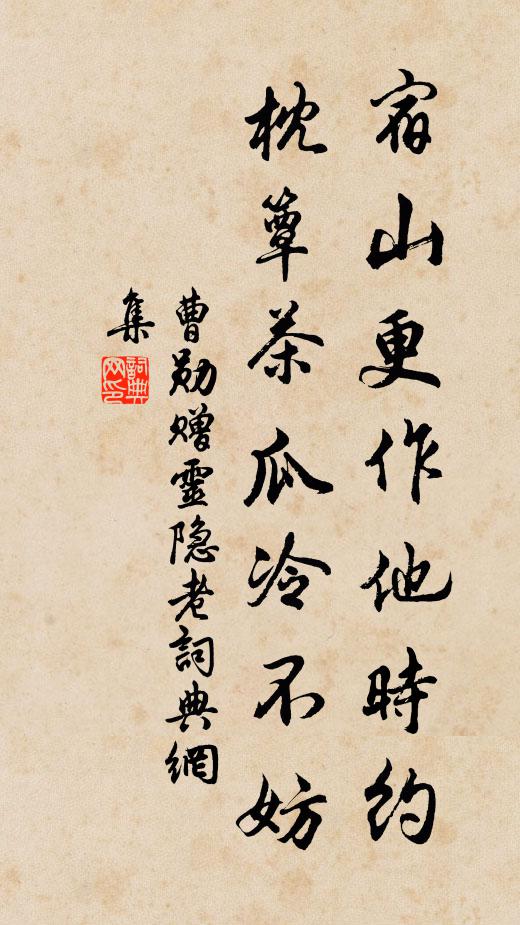 宿山更作他時約
枕簟茶瓜冷不妨
曹勛贈靈隐老詞典網
集
詞典
网印